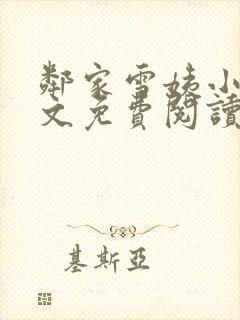 鄰家雪姨小
文免費閱讀
基斯亞